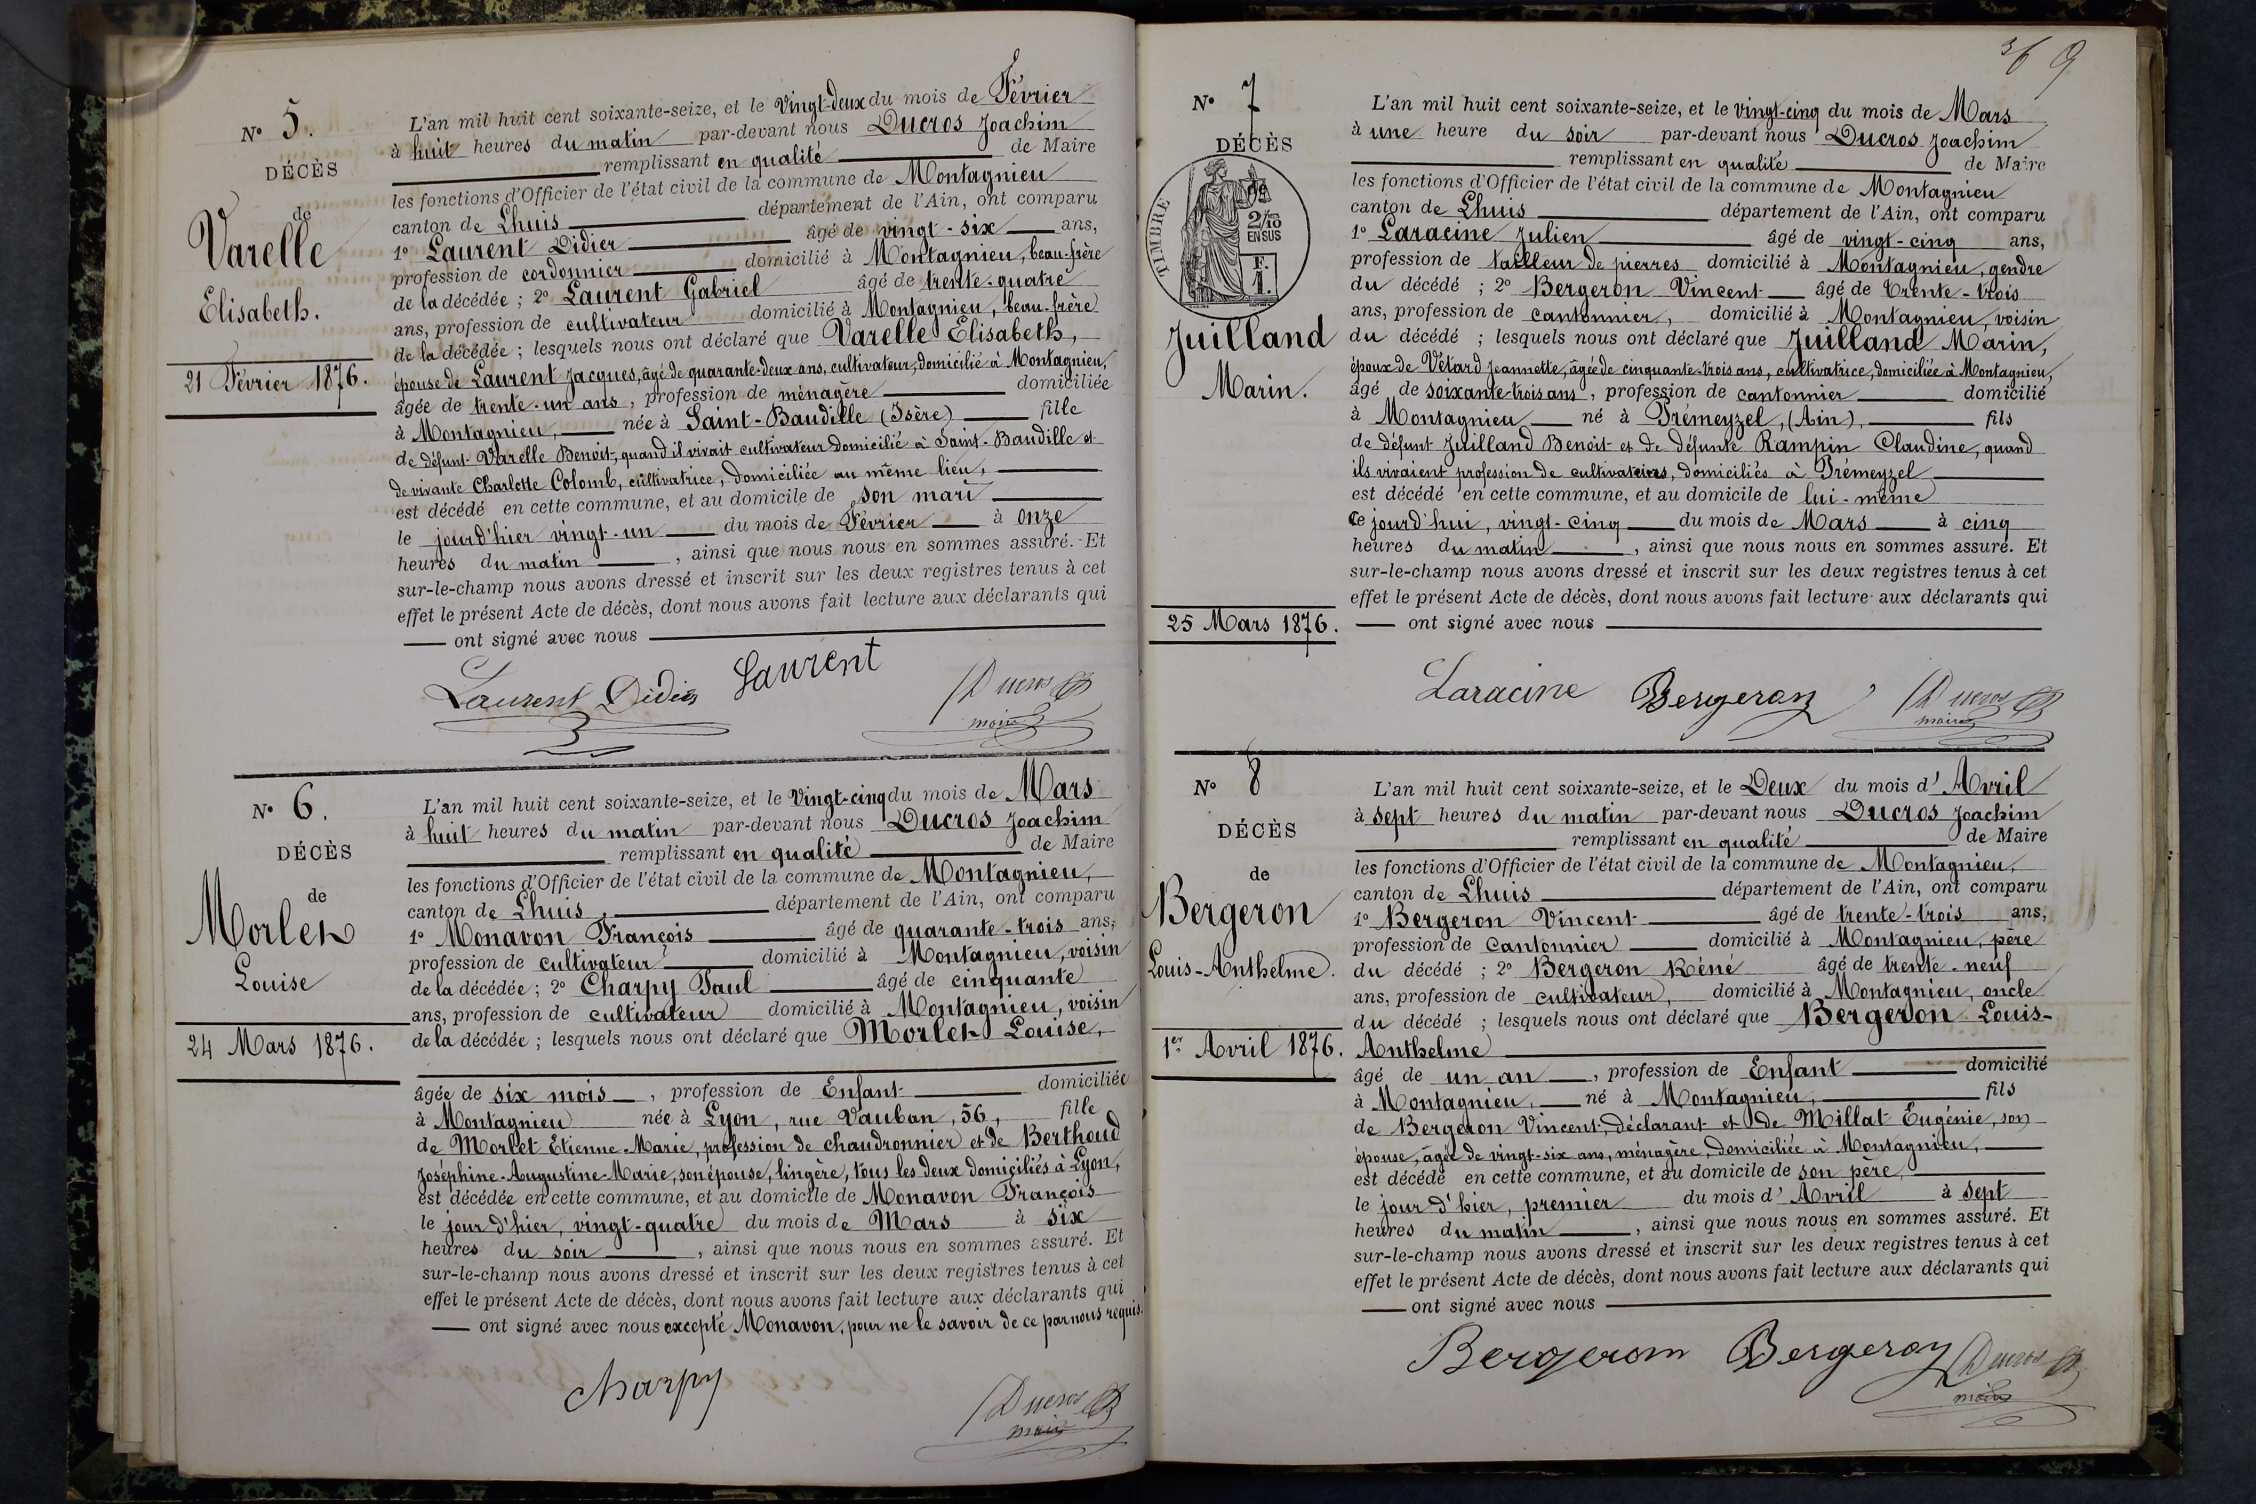 N° 5.
DÉCÈS
de
Varelle
Elisabeth.
21 Février 1876.
L'an mil huit cent soixante-seize, et le Vingt-deux du mois de Février
à huit heures du matin par-devant nous Ducros Joachim
remplissant en qualité de Maire
les fonctions d'Officier de l'état civil de la commune de Montagnieu
canton de Lhuis département de l'Ain, ont comparu
1° Laurent Didier âgé de vingt-six ans,
profession de cordonnier domicilié à Montagnieu, beau-frère
de la décédée ; 2° Laurent Gabriel âgé de trente-quatre
ans, profession de cultivateur domicilié à Montagnieu, beau-frère
de la décédée ; lesquels nous ont déclaré que Varelle Elisabeth,
épouse de Laurent Jacques, âgé de quarante-deux ans, cultivateur, domicilié à Montagnieu,
âgée de trente-un ans, profession de ménagère domiciliée
à Montagnieu, née à Saint-Baudille (Isère) fille
de défunt Varelle Benoit, quand il vivait cultivateur domicilié à Saint-Baudille et
de vivante Charlotte Colomb, cultivatrice, domiciliée au même lieu,
est décédé en cette commune, et au domicile de son mari
le jourd'hier vingt-un du mois de Février à onze
heures du matin, ainsi que nous nous en sommes assuré. Et
sur-le-champ nous avons dressé et inscrit sur les deux registres tenus à cet
effet le présent Acte de décès, dont nous avons fait lecture aux déclarants qui
ont signé avec nous
Laurent Didier Laurent Ducros
maire
N° 6.
DÉCÈS
de
Morlet
Louise
24 Mars 1876.
L'an mil huit cent soixante-seize, et le Vingt-cinq du mois de Mars
à huit heures du matin par-devant nous Ducros Joachim
remplissant en qualité de Maire
les fonctions d'Officier de l'état civil de la commune de Montagnieu,
canton de Lhuis, département de l'Ain, ont comparu
1° Monavon François âgé de quarante-trois ans,
profession de cultivateur domicilié à Montagnieu, voisin
de la décédée ; 2° Charpy Paul âgé de cinquante
ans, profession de cultivateur domicilié à Montagnieu, voisin
de la décédée ; lesquels nous ont déclaré que Morlet Louise,
âgée de six mois, profession de Enfant domiciliée
à Montagnieu née à Lyon, rue Vauban, 56, fille
de Morlet Etienne-Marie, profession de chaudronnier et de Berthoud
Joséphine-Augustine-Marie, son épouse, lingère, tous les deux domiciliés à Lyon,
est décédée en cette commune, et au domicile de Monavon François
le jour d'hier, vingt-quatre du mois de Mars à six
heures du soir, ainsi que nous nous en sommes assuré. Et
sur-le-champ nous avons dressé et inscrit sur les deux registres tenus à cet
effet le présent Acte de décès, dont nous avons fait lecture aux déclarants qui
ont signé avec nous excepté Monavon, pour ne le savoir de ce par nous requis.
Charpy Ducros
maire
36 9
N° 7
DÉCÈS
de
TIMBRE
2/10
EN SUS
F.
1.
Juilland
Marin.
25 Mars 1876.
L'an mil huit cent soixante-seize, et le vingt-cinq du mois de Mars
à une heure du soir par-devant nous Ducros Joachim
remplissant en qualité de Maire
les fonctions d'Officier de l'état civil de la commune de Montagnieu
canton de Lhuis département de l'Ain, ont comparu
1° Laracine Julien âgé de vingt-cinq ans,
profession de tailleur de pierres domicilié à Montagnieu, gendre
du décédé ; 2° Bergeron Vincent âgé de trente-trois
ans, profession de cantonnier, domicilié à Montagnieu, voisin
du décédé ; lesquels nous ont déclaré que Juilland Marin,
époux de Vétard Jeannette, âgée de cinquante-trois ans, cultivatrice, domiciliée à Montagnieu,
âgé de soixante-trois ans, profession de cantonnier domicilié
à Montagnieu né à Prémeyzel, (Ain), fils
de défunt Juilland Benoit et de défunte Rampin Claudine, quand
ils vivaient profession de cultivateurs, domiciliés à Prémeyzel
est décédé en cette commune, et au domicile de lui-même
Ce jourd'hui, vingt-cinq du mois de Mars à cinq
heures du matin, ainsi que nous nous en sommes assuré. Et
sur-le-champ nous avons dressé et inscrit sur les deux registres tenus à cet
effet le présent Acte de décès, dont nous avons fait lecture aux déclarants qui
ont signé avec nous
Laracine Bergeron Ducros
maire
N° 8
DÉCÈS
de
Bergeron
Louis-Anthelme.
1er Avril 1876.
L'an mil huit cent soixante-seize, et le Deux du mois d'Avril
à sept heures du matin par-devant nous Ducros Joachim
remplissant en qualité de Maire
les fonctions d'Officier de l'état civil de la commune de Montagnieu,
canton de Lhuis département de l'Ain, ont comparu
1° Bergeron Vincent âgé de trente-trois ans,
profession de Cantonnier domicilié à Montagnieu, père
du décédé ; 2° Bergeron Réné âgé de trente-neuf
ans, profession de cultivateur, domicilié à Montagnieu, oncle
du décédé ; lesquels nous ont déclaré que Bergeron Louis-
Anthelme
âgé de un an, profession de Enfant domicilié
à Montagnieu, né à Montagnieu, fils
de Bergeron Vincent, déclarant et de Millat Eugénie, son
épouse, âgée de vingt-six ans, ménagère, domiciliée à Montagnieu,
est décédé en cette commune, et au domicile de son père,
le jour d'hier, premier du mois d'Avril à sept
heures du matin, ainsi que nous nous en sommes assuré. Et
sur-le-champ nous avons dressé et inscrit sur les deux registres tenus à cet
effet le présent Acte de décès, dont nous avons fait lecture aux déclarants qui
ont signé avec nous
Bergeron Bergeron Ducros
maire